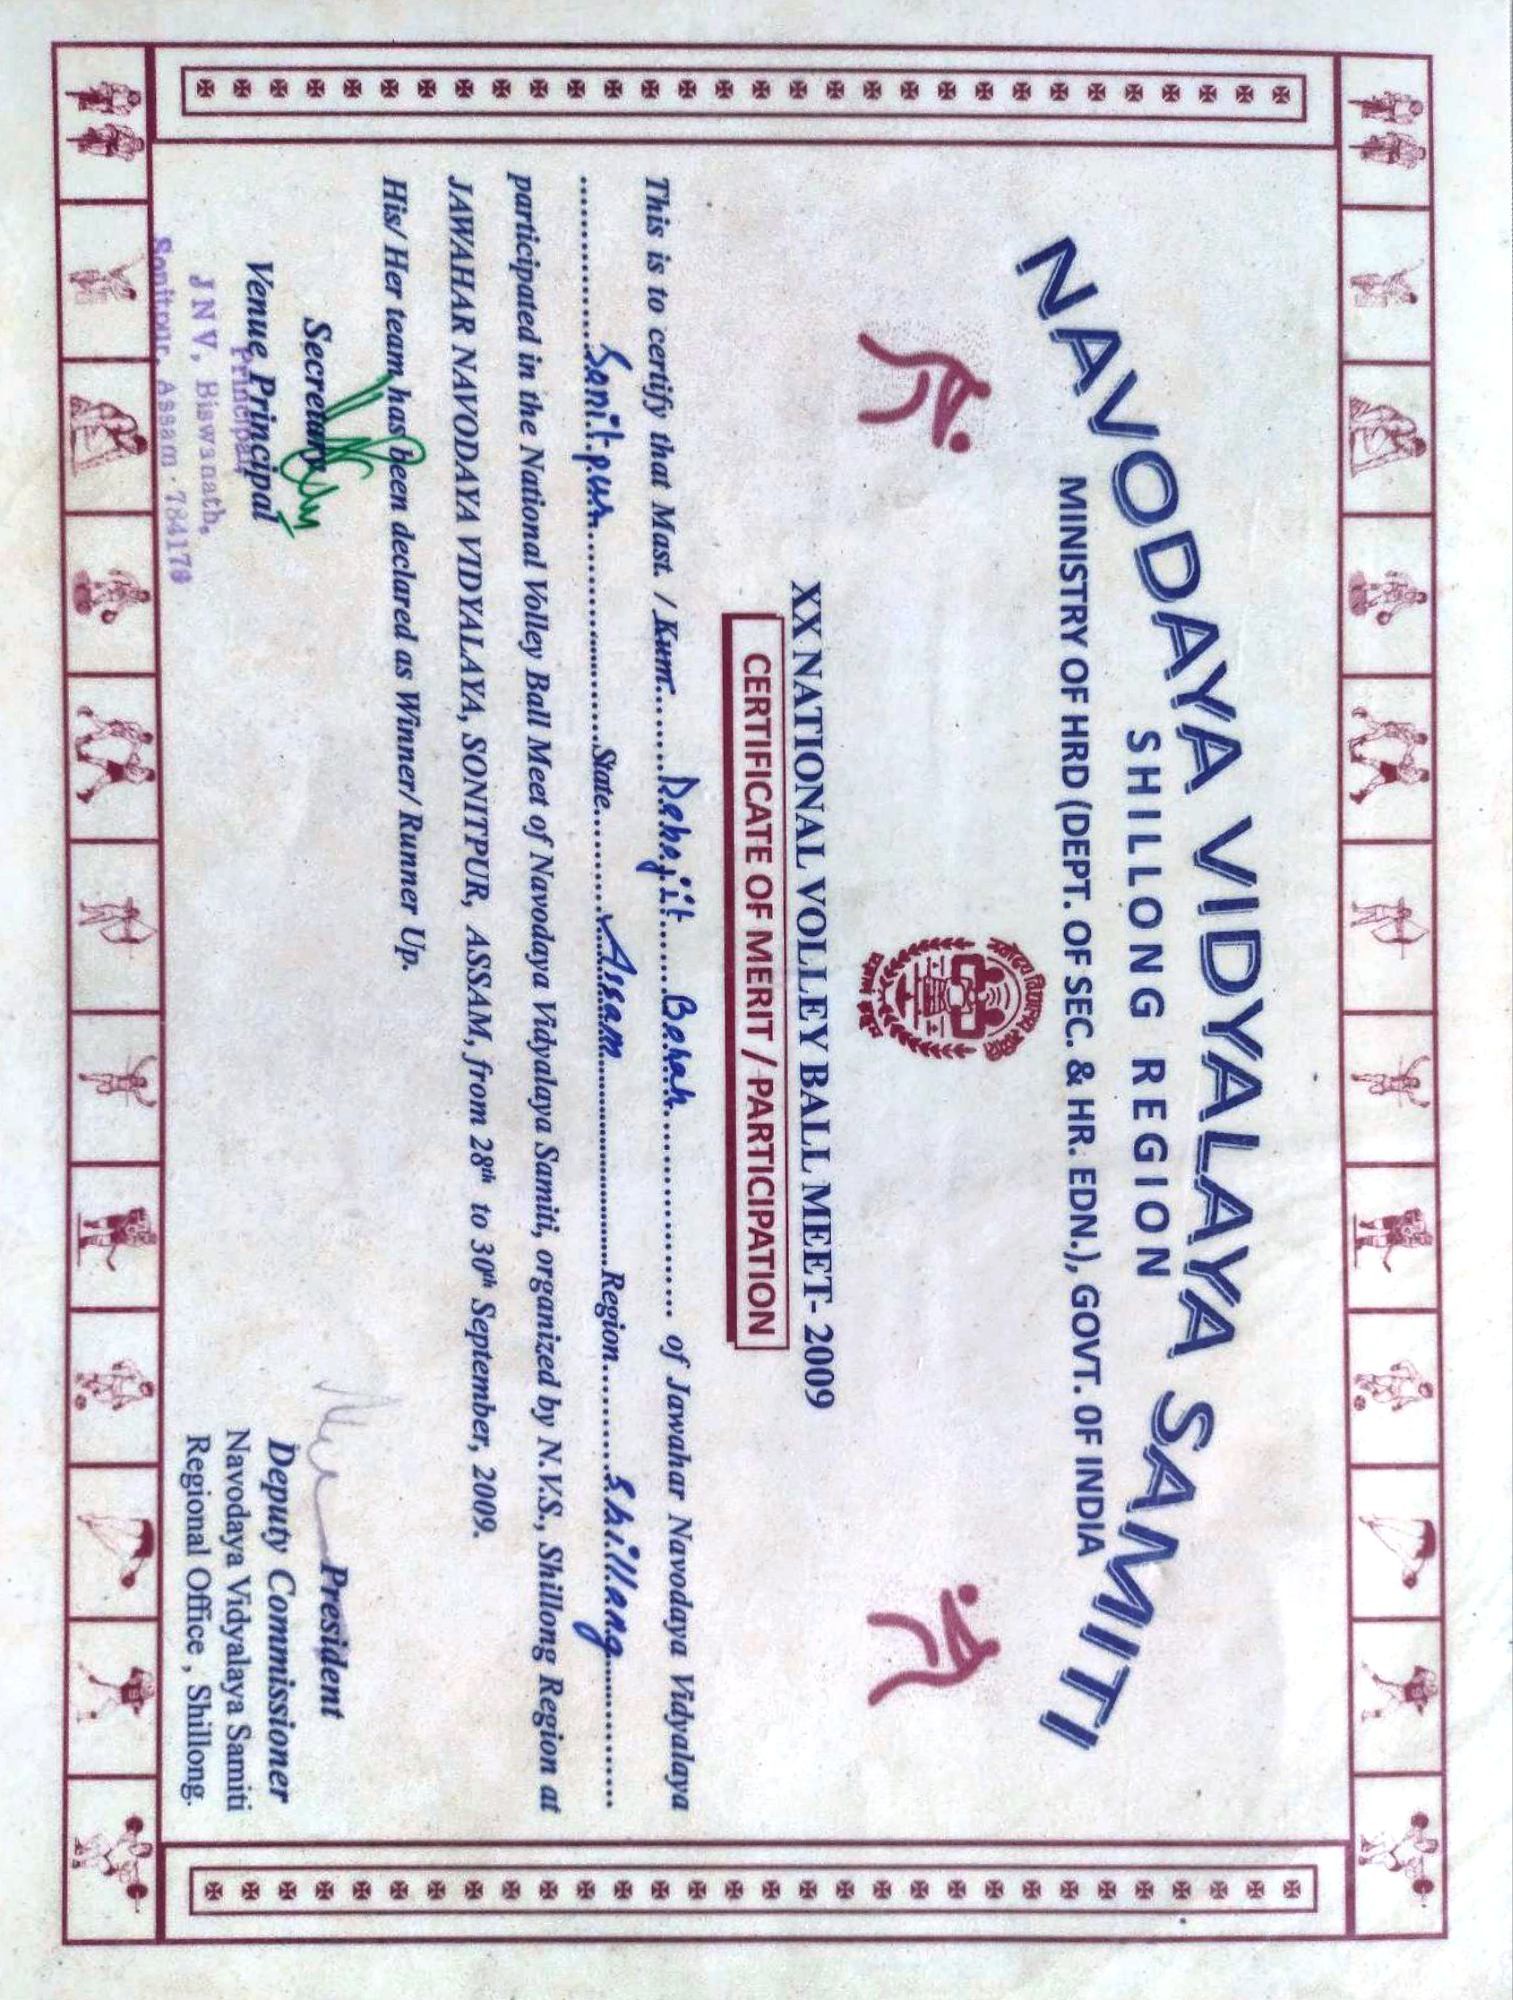 NAVODAYA VIDYALAYA SAMITI
SHILLONG REGION
MINISTRY OF HRD (DEPT. OF SEC. & HR. EDN.), GOVT. OF INDIA
XX NATIONAL VOLLEY BALL MEET- 2009
CERTIFICATE OF MERIT / PARTICIPATION
This is to certify that Mast. / Kum.......Debojit.....Borah............... of Jawahar Navodaya Vidyalaya
............Sonitpur.................State..........Assam....................Region..........Shillong............
participated in the National Volley Ball Meet of Navodaya Vidyalaya Samiti, organized by N.V.S., Shillong Region at
JAWAHAR NAVODAYA VIDYALAYA, SONITPUR, ASSAM, from 28th to 30th September, 2009.
His/ Her team has been declared as Winner/ Runner Up.
Secretary
Venue Principal
Principal
J N V, Biswanath,
Sonitpur, Assam - 784176
President
Deputy Commissioner
Navodaya Vidyalaya Samiti
Regional Office , Shillong.